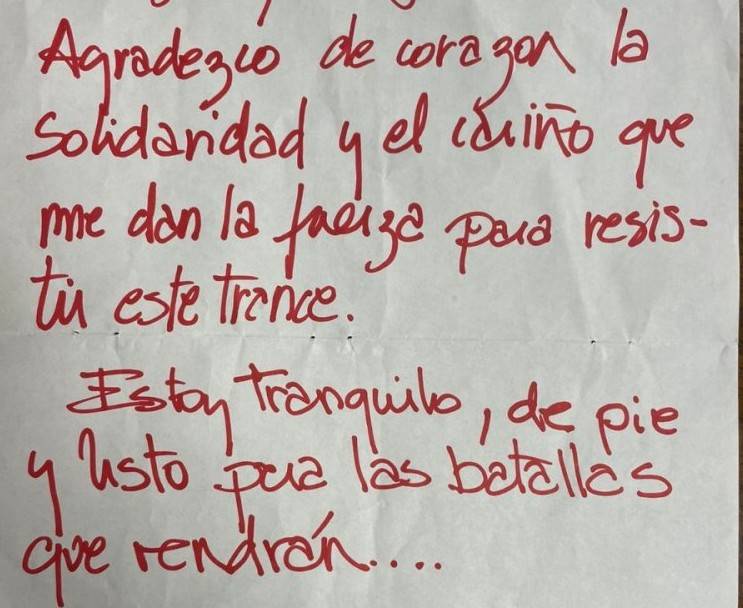 Agradezco de corazon la
Solidaridad y el cariño que
me dan la fuerza para resis-
tir este trance.
Estoy tranquilo, de pie
y listo para las batallas
que vendrán....